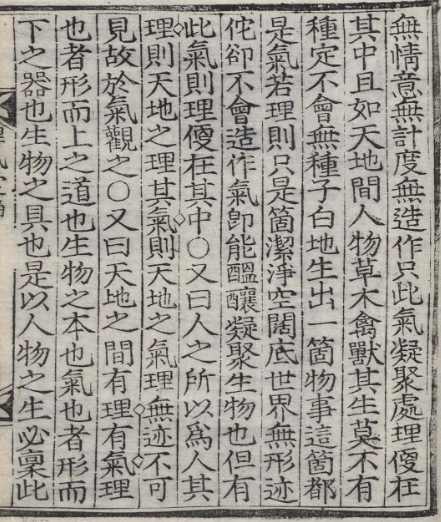 無情意無計度無造作只此氣凝聚處理便在
其中且如天地間人物草木禽獸其生莫不有
種定不會無種子白地生出一箇物事這箇都
是氣若理則只是箇潔淨空闊底世界無形迹
佗卻不會造作氣卽能醞釀凝聚生物也但有
此氣則理便在其中○又曰人之所以爲人其
理則天地之理其氣則天地之氣理無迹不可
見故於氣觀之○又曰天地之間有理有氣理
也者形而上之道也生物之本也氣也者形而
下之器也生物之具也是以人物之生必稟此